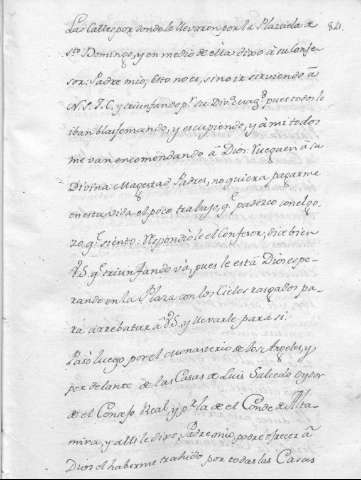 las Calles por donde le llevaron por la Plazuela de
Sto. Domingo, y en medio de ella dixo à su Confe-
sor: Padre mio, esto no es, sino ir sirviendo à
N. S. J. C. y triunfando pr. su Divina pues todos le
iban blasfemando, y escupiendo, y à mi todos
me van encomendando à Dios. Rueguen à su
Divina Magestad Padres, no quiera pagarme
en esta vida el poco trabajo, q. padezco con el go-
zo, q. siento. Respondióle el Confesor, dice bien
VS. q. triunfando và, pues le està Dios espe-
rando en la Plaza con los Cielos rasgados pa-
ra arrebatar à VS. y llevarle para si.
Pasò luego por el monasterio de los Angeles, y
por delante de las Casas de Luis Salcedo oydor
de el Consejo Real, y pr. la de el Conde de Alta-
mira, y alli le dixo, Padre mio, podre ofrecer à
Dios el haberme trahido por todas las Casas
821.